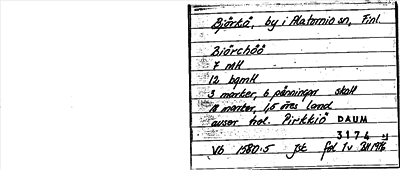 Björkö, by i Alatornio sn, Finl.
Biörchöö
7 mtl
12 bgmtl
3 marker, 6 pänningar skatt
10 marker, 1,5 öres land
avser trol. Pirkkiö DAUM
3174
Vb 1580:5 fol 1v